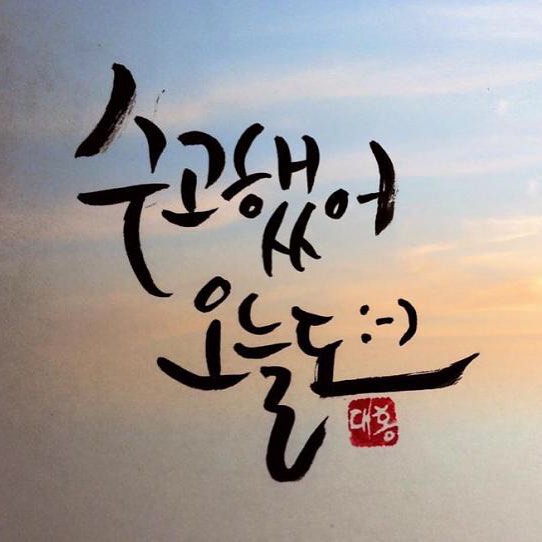 수고했어
오늘도 :-)
대홍